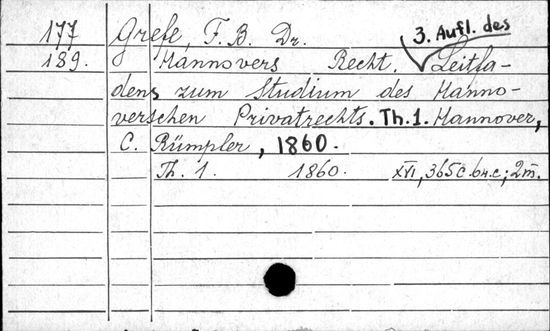 177 Grefe, F. B. Dr. 3. Aufl. des
189. Hannovers Recht. Leitfa-
dens zum Studium des Hanno-
verschen Privatrechts. Th. 1. Hannover,
C. Rümpler, 1860.
Th. 1. 1860. XVI, 365 c.